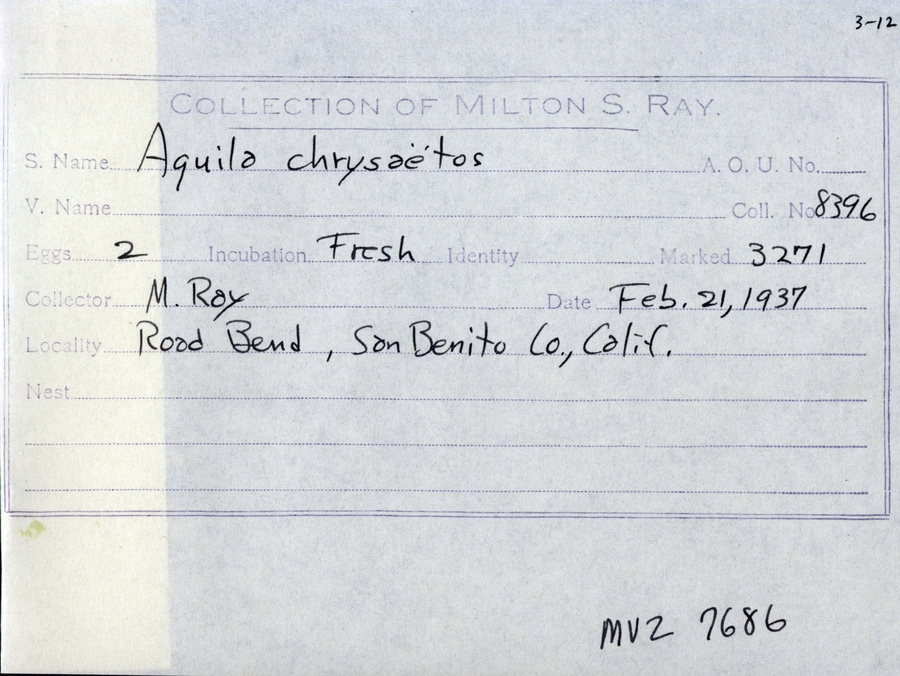 3-12
COLLECTION OF MILTON S. RAY.
S. Name Aquila chrysaëtos A. O. U. No.
V. Name Coll. No 8396
Eggs 2 Incubation Fresh Identity Marked 3271
Collector M. Ray Date Feb. 21, 1937
Locality Road Bend, San Benito Co., Calif.
Nest
MVZ 7686